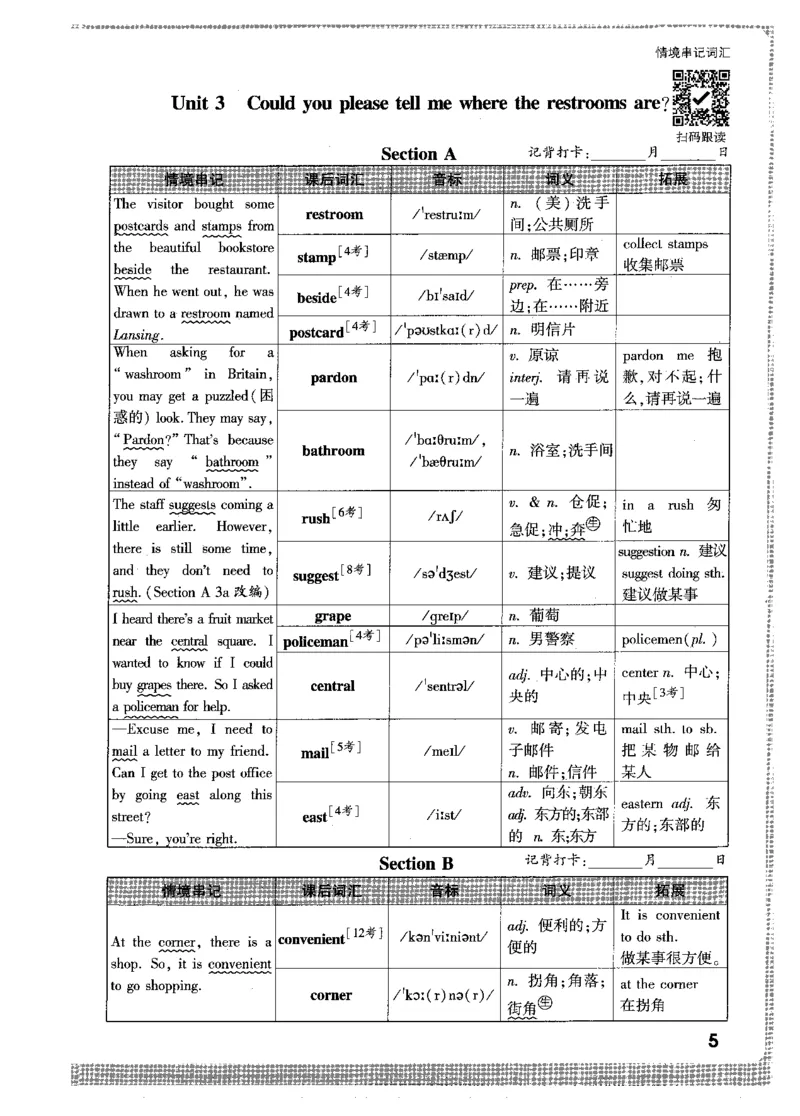 情境串记词汇
Unit 3 Could you please tell me where the restrooms are?
扫码跟读
Section A 记背打卡:______月______日
情境串记 课后词汇 音标 词义 拓展
The visitor bought some
postcards and stamps from
the beautiful bookstore
beside the restaurant.
When he went out, he was
drawn to a restroom named
Lansing.
restroom /ˈrestruːm/ n. (美)洗手
间;公共厕所
stamp[4考] /stæmp/ n. 邮票;印章 collect stamps
收集邮票
beside[4考] /bɪˈsaɪd/ prep. 在……旁
边;在……附近
postcard[4考] /ˈpəʊstkɑː(r)d/ n. 明信片
When asking for a
“washroom” in Britain,
you may get a puzzled(困
惑的) look. They may say,
“Pardon?” That's because
they say “bathroom”
instead of “washroom”.
pardon /ˈpɑː(r)dn/ v. 原谅
interj. 请再说
一遍
pardon me 抱
歉,对不起;什
么,请再说一遍
bathroom /ˈbɑːθruːm/,
/ˈbæθruːm/
n. 浴室;洗手间
The staff suggests coming a
little earlier. However,
there is still some time,
and they don't need to
rush. (Section A 3a 改编)
rush[6考] /rʌʃ/ v. & n. 仓促;
急促;冲;奔生
in a rush 匆
忙地
suggest[8考] /səˈdʒest/ v. 建议;提议 suggestion n. 建议
suggest doing sth.
建议做某事
I heard there's a fruit market
near the central square. I
wanted to know if I could
buy grapes there. So I asked
a policeman for help.
grape /ɡreɪp/ n. 葡萄
policeman[4考] /pəˈliːsmən/ n. 男警察 policemen(pl. )
central /ˈsentrəl/ adj. 中心的;中
央的
center n. 中心;
中央[3考]
—Excuse me, I need to
mail a letter to my friend.
Can I get to the post office
by going east along this
street?
—Sure, you're right.
mail[5考] /meɪl/ v. 邮寄;发电
子邮件
n. 邮件;信件
mail sth. to sb.
把某物邮给
某人
east[4考] /iːst/ adv. 向东;朝东
adj. 东方的;东部
的 n. 东;东方
eastern adj. 东
方的;东部的
Section B 记背打卡:______月______日
情境串记 课后词汇 音标 词义 拓展
At the corner, there is a
shop. So, it is convenient
to go shopping.
convenient[12考] /kənˈviːniənt/ adj. 便利的;方
便的
It is convenient
to do sth.
做某事很方便。
corner /ˈkɔː(r)nə(r)/ n. 拐角;角落;
街角生
at the corner
在拐角
5